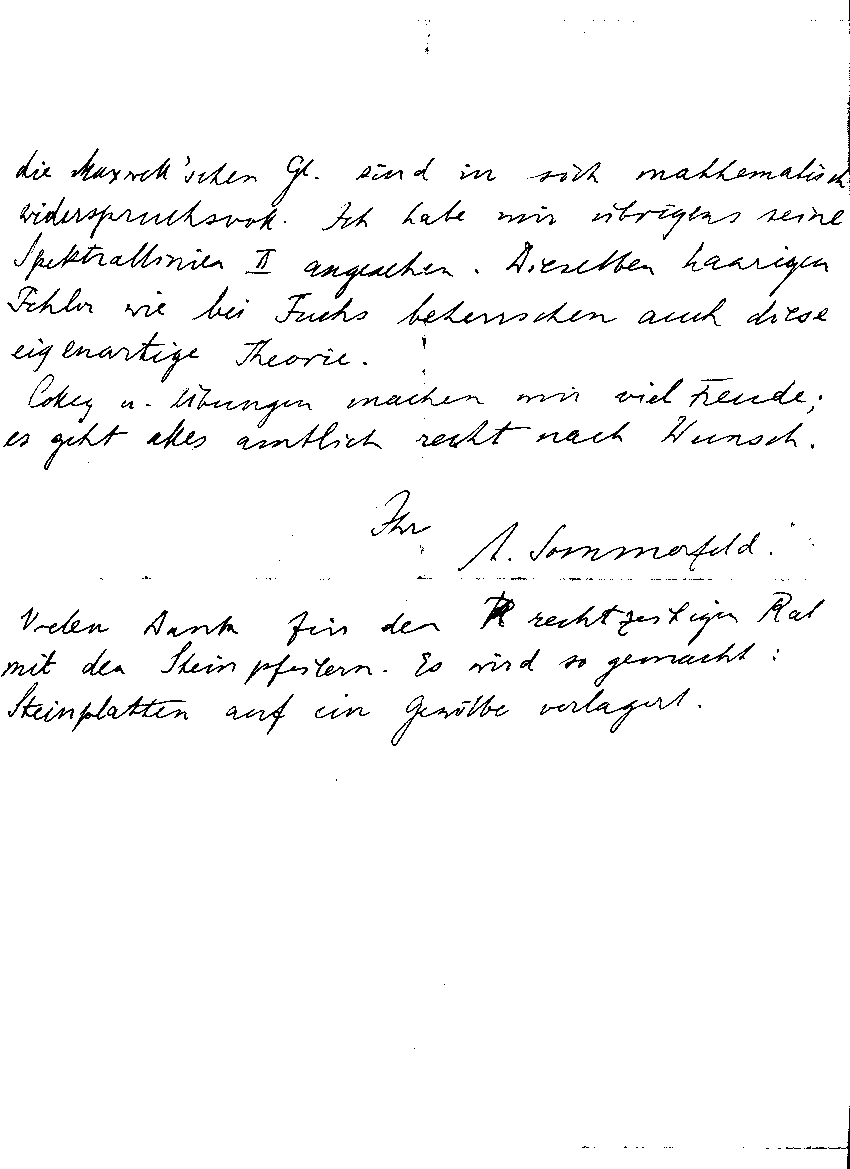 die Maxwell'schen Gl. sind in sich mathematisch
widerspruchsvoll. Ich habe mir übrigens seine
Spektrallinien II angesehen. Dieselben haarigen
Fehler wie bei Fuchs beherrschen auch diese
eigenartige Theorie.
u. Übungen machen mir viel Freude;
es geht alles amtlich recht nach Wunsch.
Ihr
A. Sommerfeld.
Vielen Dank für den rechtzeitigen Rat
mit den Steinpfeilern. Es wird so gemacht:
Steinplatten auf ein Gewölbe verlagert.